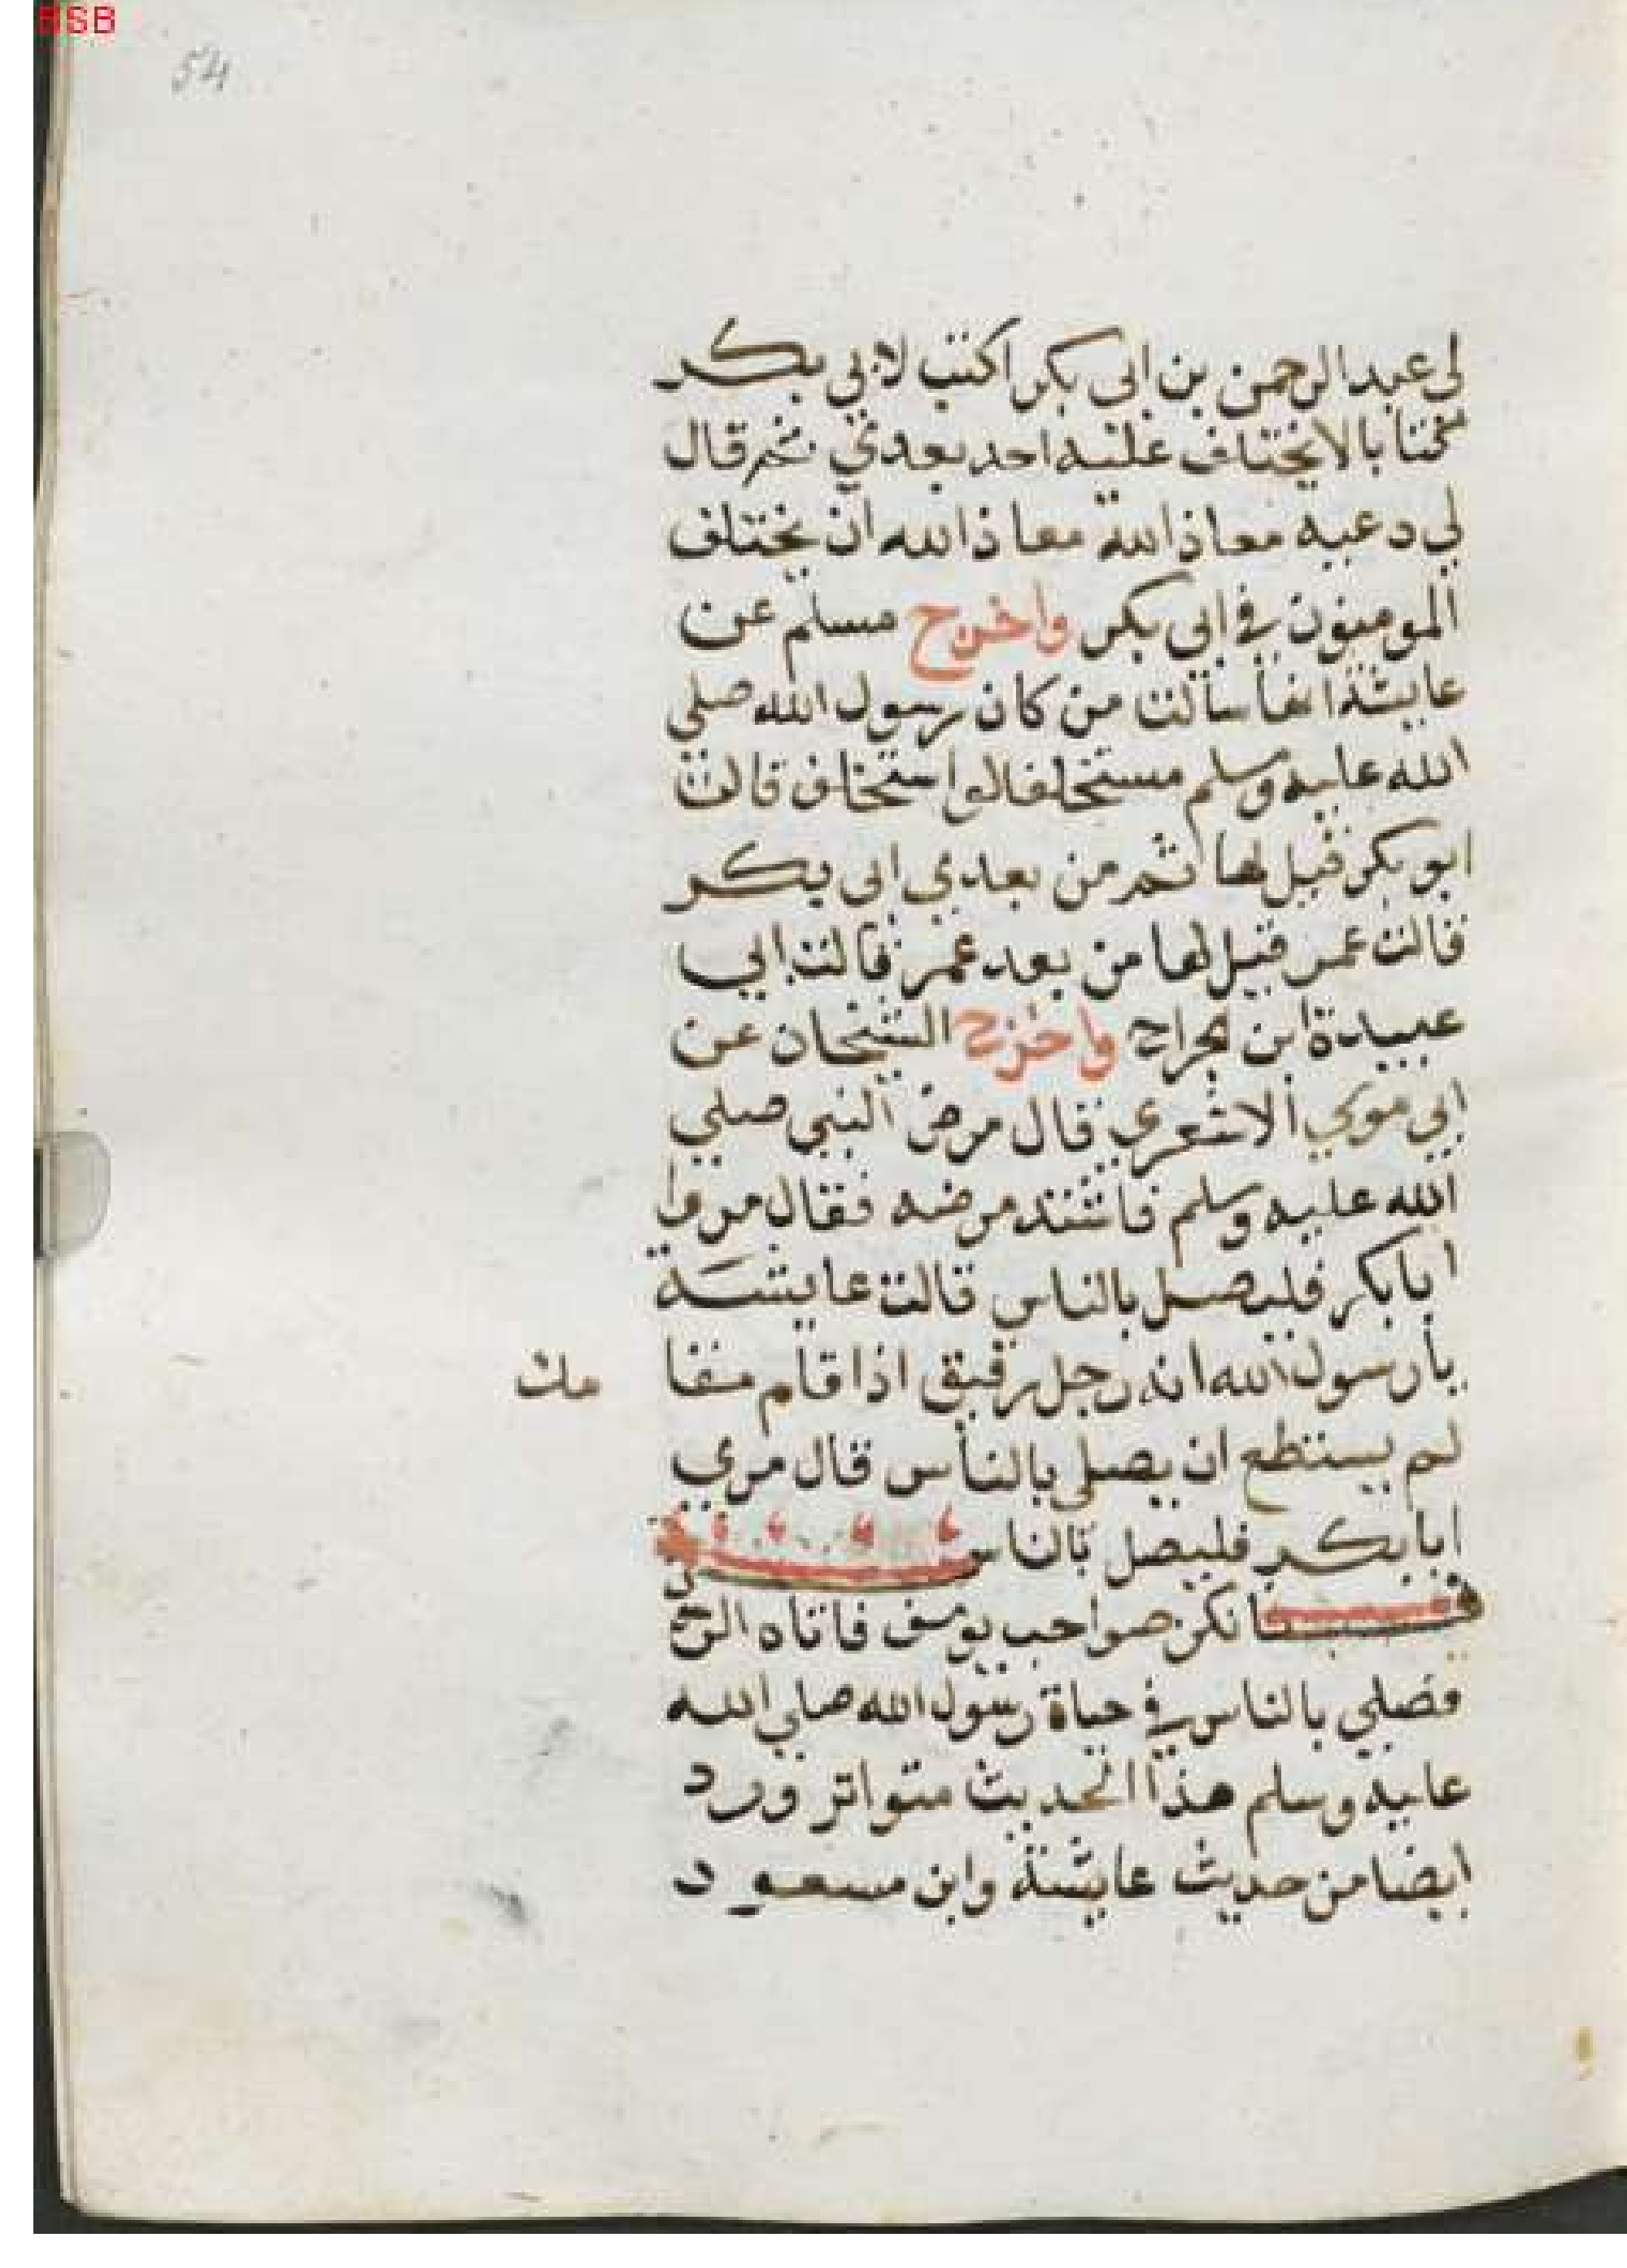 BSB
54
لي عبد الرحمن بن ابي بكر اكتب لابي بكر
كتابا لا يختلف عليه احد بعدي ثم قال
لي دعيه معاذ الله معاذ الله ان يختلف
المومنون في ابي بكر واخرج مسلم عن
عايشة انها سالت من كان رسول الله صلي
الله عليه وسلم مستخلفا لو استخلف قالت
ابو بكر قيل لها ثم من بعدي ابي بكر
قالت عمر قيل لها من بعد عمر قالت ابي
عبيدة ابن الجراح واخرج الشيخان عن
ابي موسي الاشعري قال مرض النبي صلي
الله عليه وسلم فاشتد مرضه فقال مروا
ابا بكر فليصل بالناس قالت عايشة
يا رسول الله انه رجل رقيق اذا قام مقا
مك
لم يستطع ان يصلي بالناس قال مري
ابا بكر فليصل بالناس
فانكن صواحب يوسف فاتاه الر
فصلي بالناس في حياة رسول الله صلي الله
عليه وسلم هذا الحديث متواتر ورد
ايضا من حديث عايشة وابن مسعود